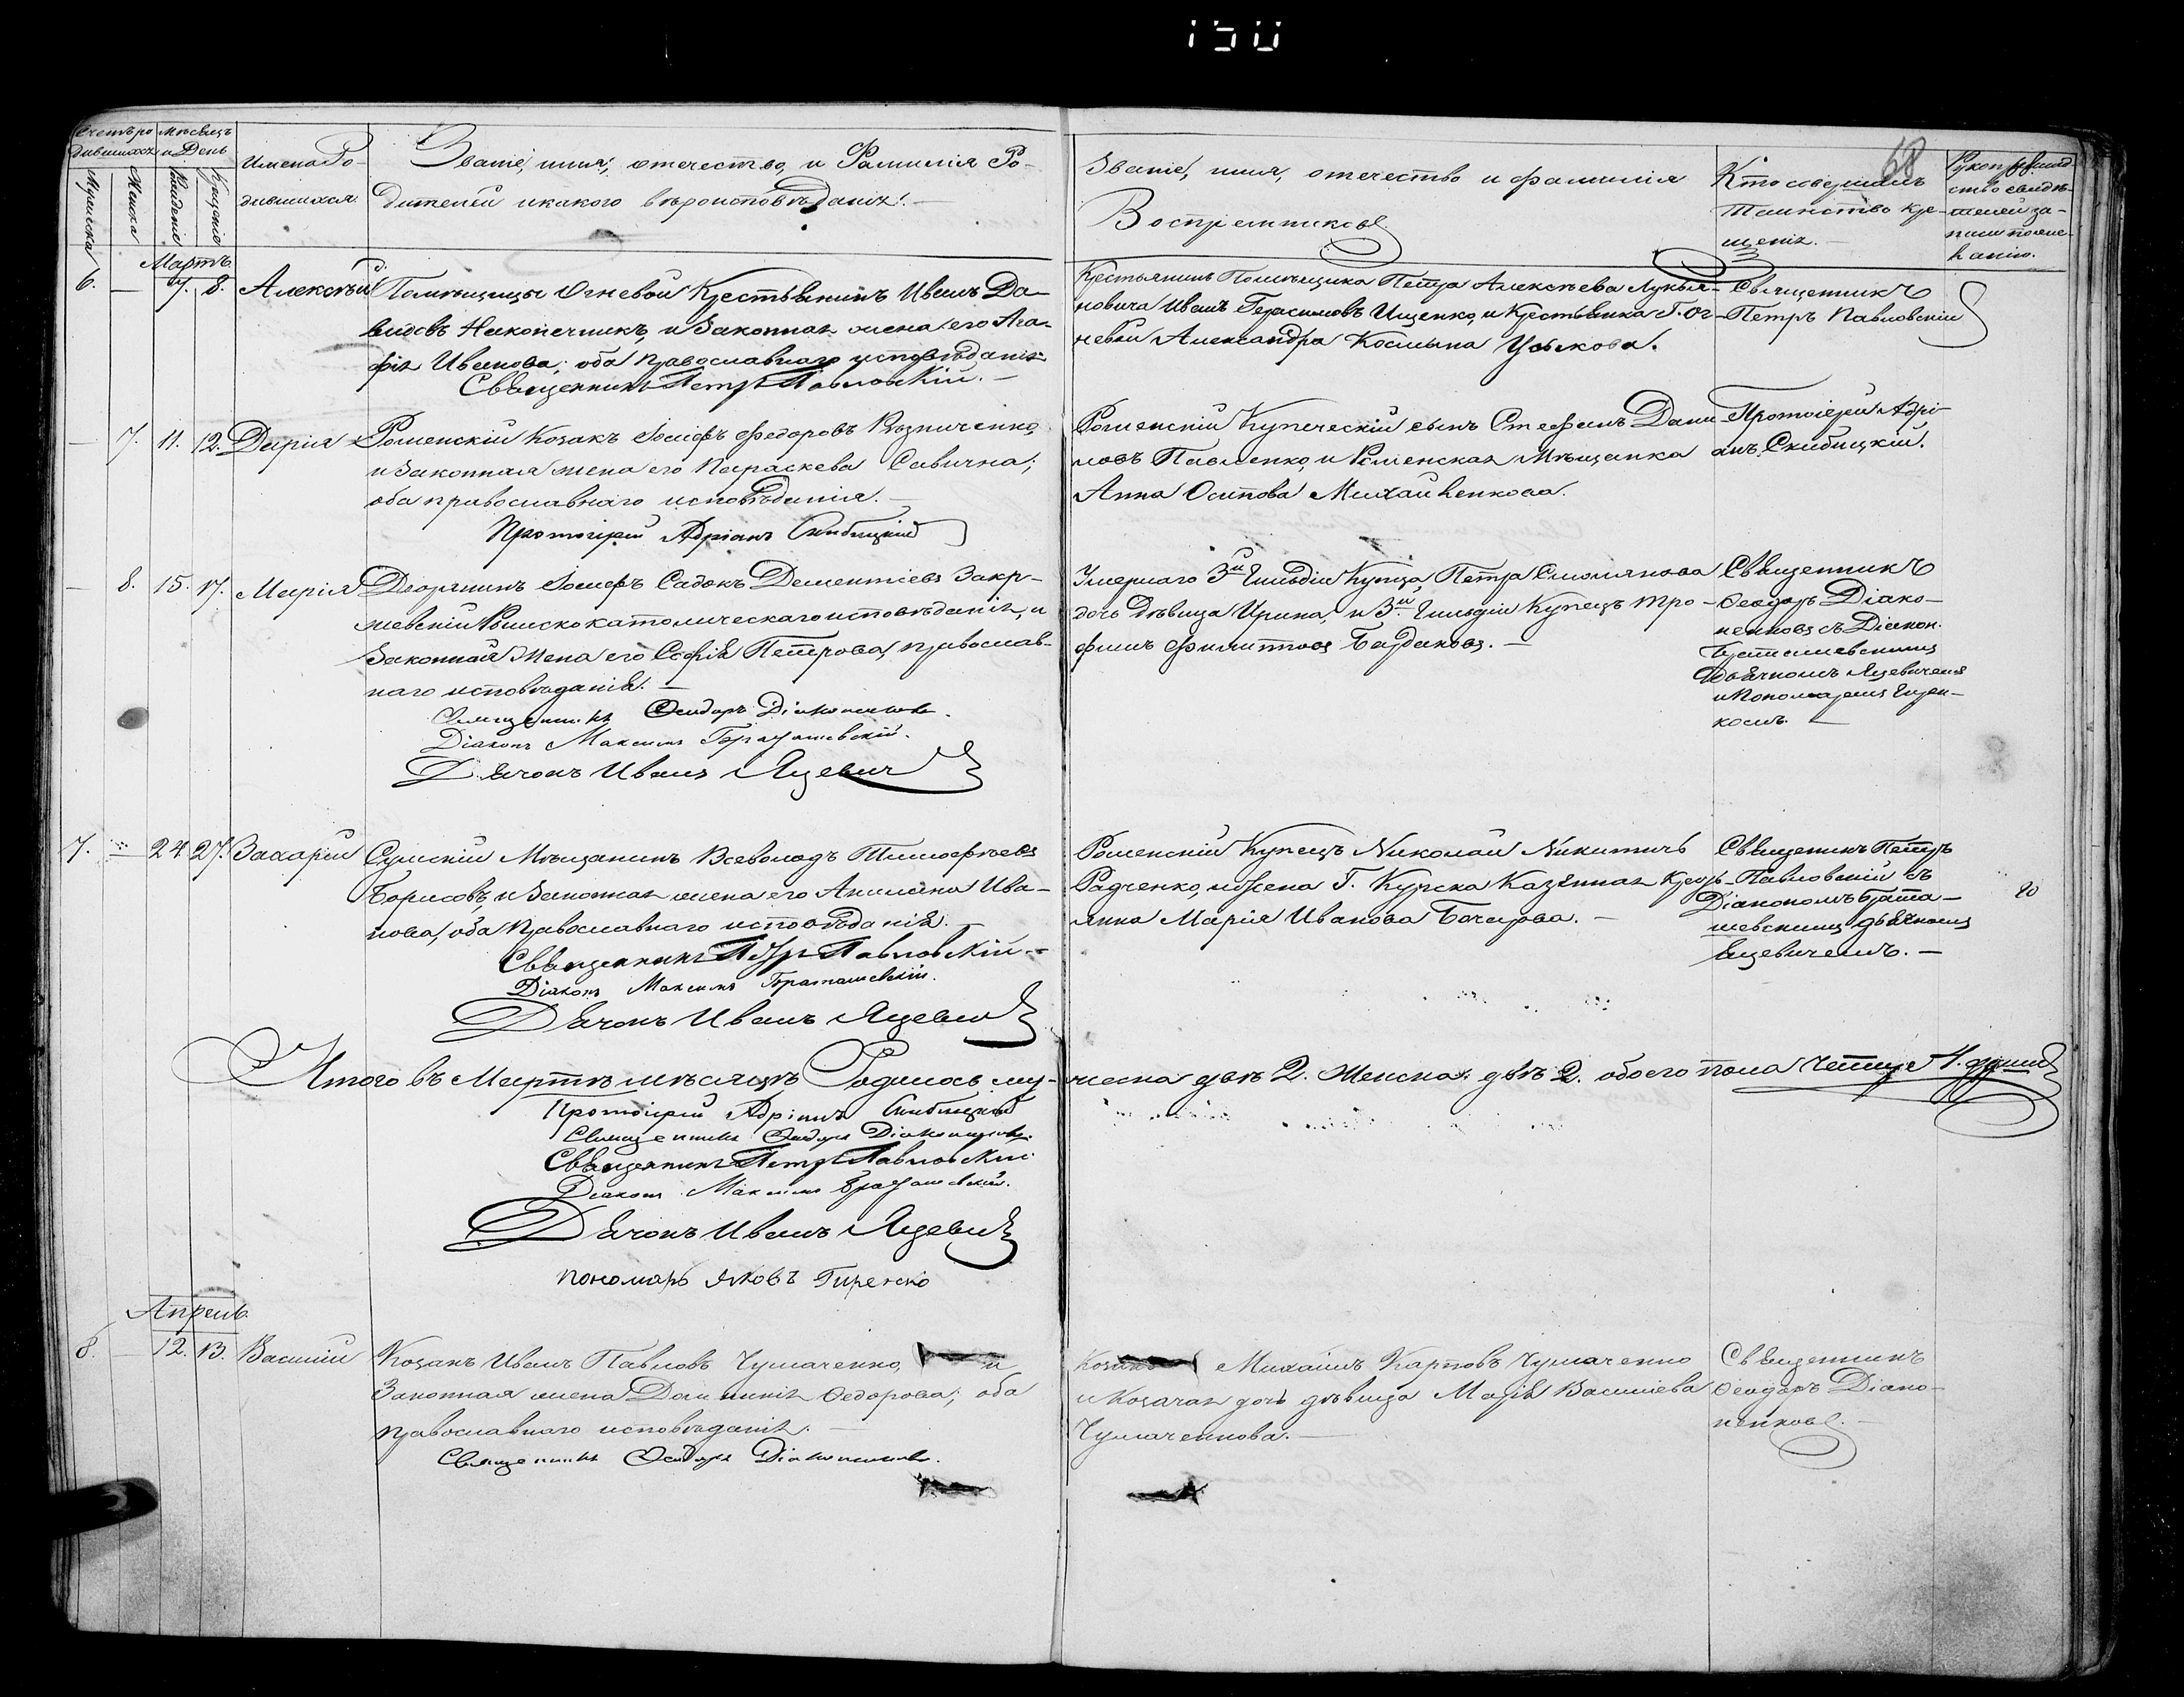 150
68
Счетъ ро
дившихся
Мѣсяцъ
и День
Мужеска
Женска
Рожденіе
Крещеніе
Имена Ро-
дившихся.
Званіе, имя, отечество, и Фамилія Ро-
дителей и какого вѣроисповѣданія.
Званіе, имя, отечество и фамилія
Воспріемниковъ.
Кто совершалъ
таинство кре-
щенія.
Рукоприклад
ство свидѣ-
телей за-
писи по же-
ланію.
Мартъ.
6. — 7. 8. Алексѣй
Помѣщицы Огневой Крестьянинъ Иванъ Да-
видовъ Наконечникъ, и Законная жена его Ага-
фія Иванова; оба православнаго исповѣданія
Священникъ Петръ Павловскій.
Крестьянинъ Помѣщика Петра Алексѣева Лукья-
новича Иванъ Герасимовъ Ищенко, и Крестьянка Г. Ог-
невой Александра Космина Усыкова.
Священникъ
Петръ Павловскій
— 7. 11. 12. Дарія
Роменскій Козакъ Іосифъ Федоровъ Возниченко,
и Законная жена его Параскева Савична;
оба православнаго исповѣданія.
Протоіерей Адріанъ Скибицкій
Роменскій Купеческій сынъ Стефанъ Дани
ловъ Павленко, и Роменская Мѣщанка
Анна Осипова Михайленкова.
Протоіерей Адрі-
анъ Скибицкій.
— 8. 15. 17. Марія
Дворянинъ Іосифъ Садокъ Дементіевъ Закр-
жевскій Римскокатолическаго исповѣданія, и
Законная Жена его Софія Петрова, православ-
наго исповѣданія. —
Священникъ Феодоръ Діаконенковъ.
Діаконъ Максимъ Браташевскій.
Дьячокъ Иванъ Яцевич
Умершаго 3й Гильдіи Купца, Петра Смолянова
дочь Дѣвица Ирина, и 3й Гильдіи Купецъ Тро-
фимъ Филиповъ Бардаковъ. —
Священникъ
Феодоръ Діако-
ненковъ съ Діакон.
Браташевскимъ
Дьячкомъ Яцевичемъ
и Пономаремъ
комъ. —
7. — 24 27. Захарій
Сумскій Мѣщанинъ Всеволодъ Тимофѣевъ
Борисовъ, и Законная жена его Акилина Ива-
нова, оба Православнаго исповѣданія.
Священникъ Петръ Павловскій.
Діаконъ Максимъ Браташевскій.
Дьячокъ Иванъ Яцевич
Роменскій Купецъ Николай Никитичъ
Радченко, и жена Г. Курска Казенная Кресть-
янка Марія Иванова Бочарова. —
Священикъ Петръ
Павловскій съ
Діакономъ Брата-
шевскимъ дьячкомъ
Яцевичемъ. —
Итого въ Мартѣ мѣсяцѣ Родилось му-
жеска двѣ 2. женска двѣ 2. обоего пола Четыре 4. души
Протоіерей Адріанъ Скибицкій
Священникъ Феодоръ Діаконенковъ.
Священникъ Петръ Павловскій
Діаконъ Максимъ Браташевскій.
Дьячокъ Иванъ Яцевич
Пономарь Яковъ Гиренко
Апрель.
8. — 12. 13. Василій
Козакъ Иванъ Павловъ Чумаченко, и
Законная жена Домникія Федорова; оба
православнаго исповѣданія. —
Священникъ Феодоръ Діаконенковъ.
Козакъ Михаилъ Карповъ Чумаченко
и Козачая дочь дѣвица Марія Василіева
Чумаченкова. —
Священникъ
Феодоръ Діако-
ненковъ. —